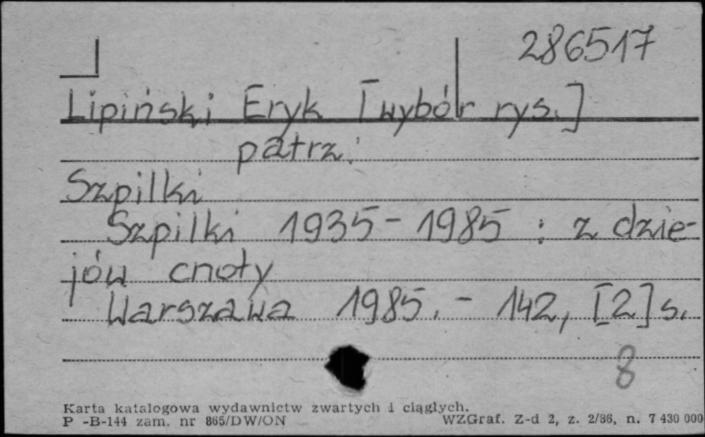 286517
Lipiński Eryk [wybór rys.]
patrz:
Szpilki
Szpilki 1935-1985 : z dzie-
jów cnoty
Warszawa 1985. - 142, [2] s.
8
Karta katalogowa wydawnictw zwartych i ciągłych.
P -B-144 zam. nr 865/DW/ON WZGraf. Z-d 2, z. 2/86, n. 7 430 000